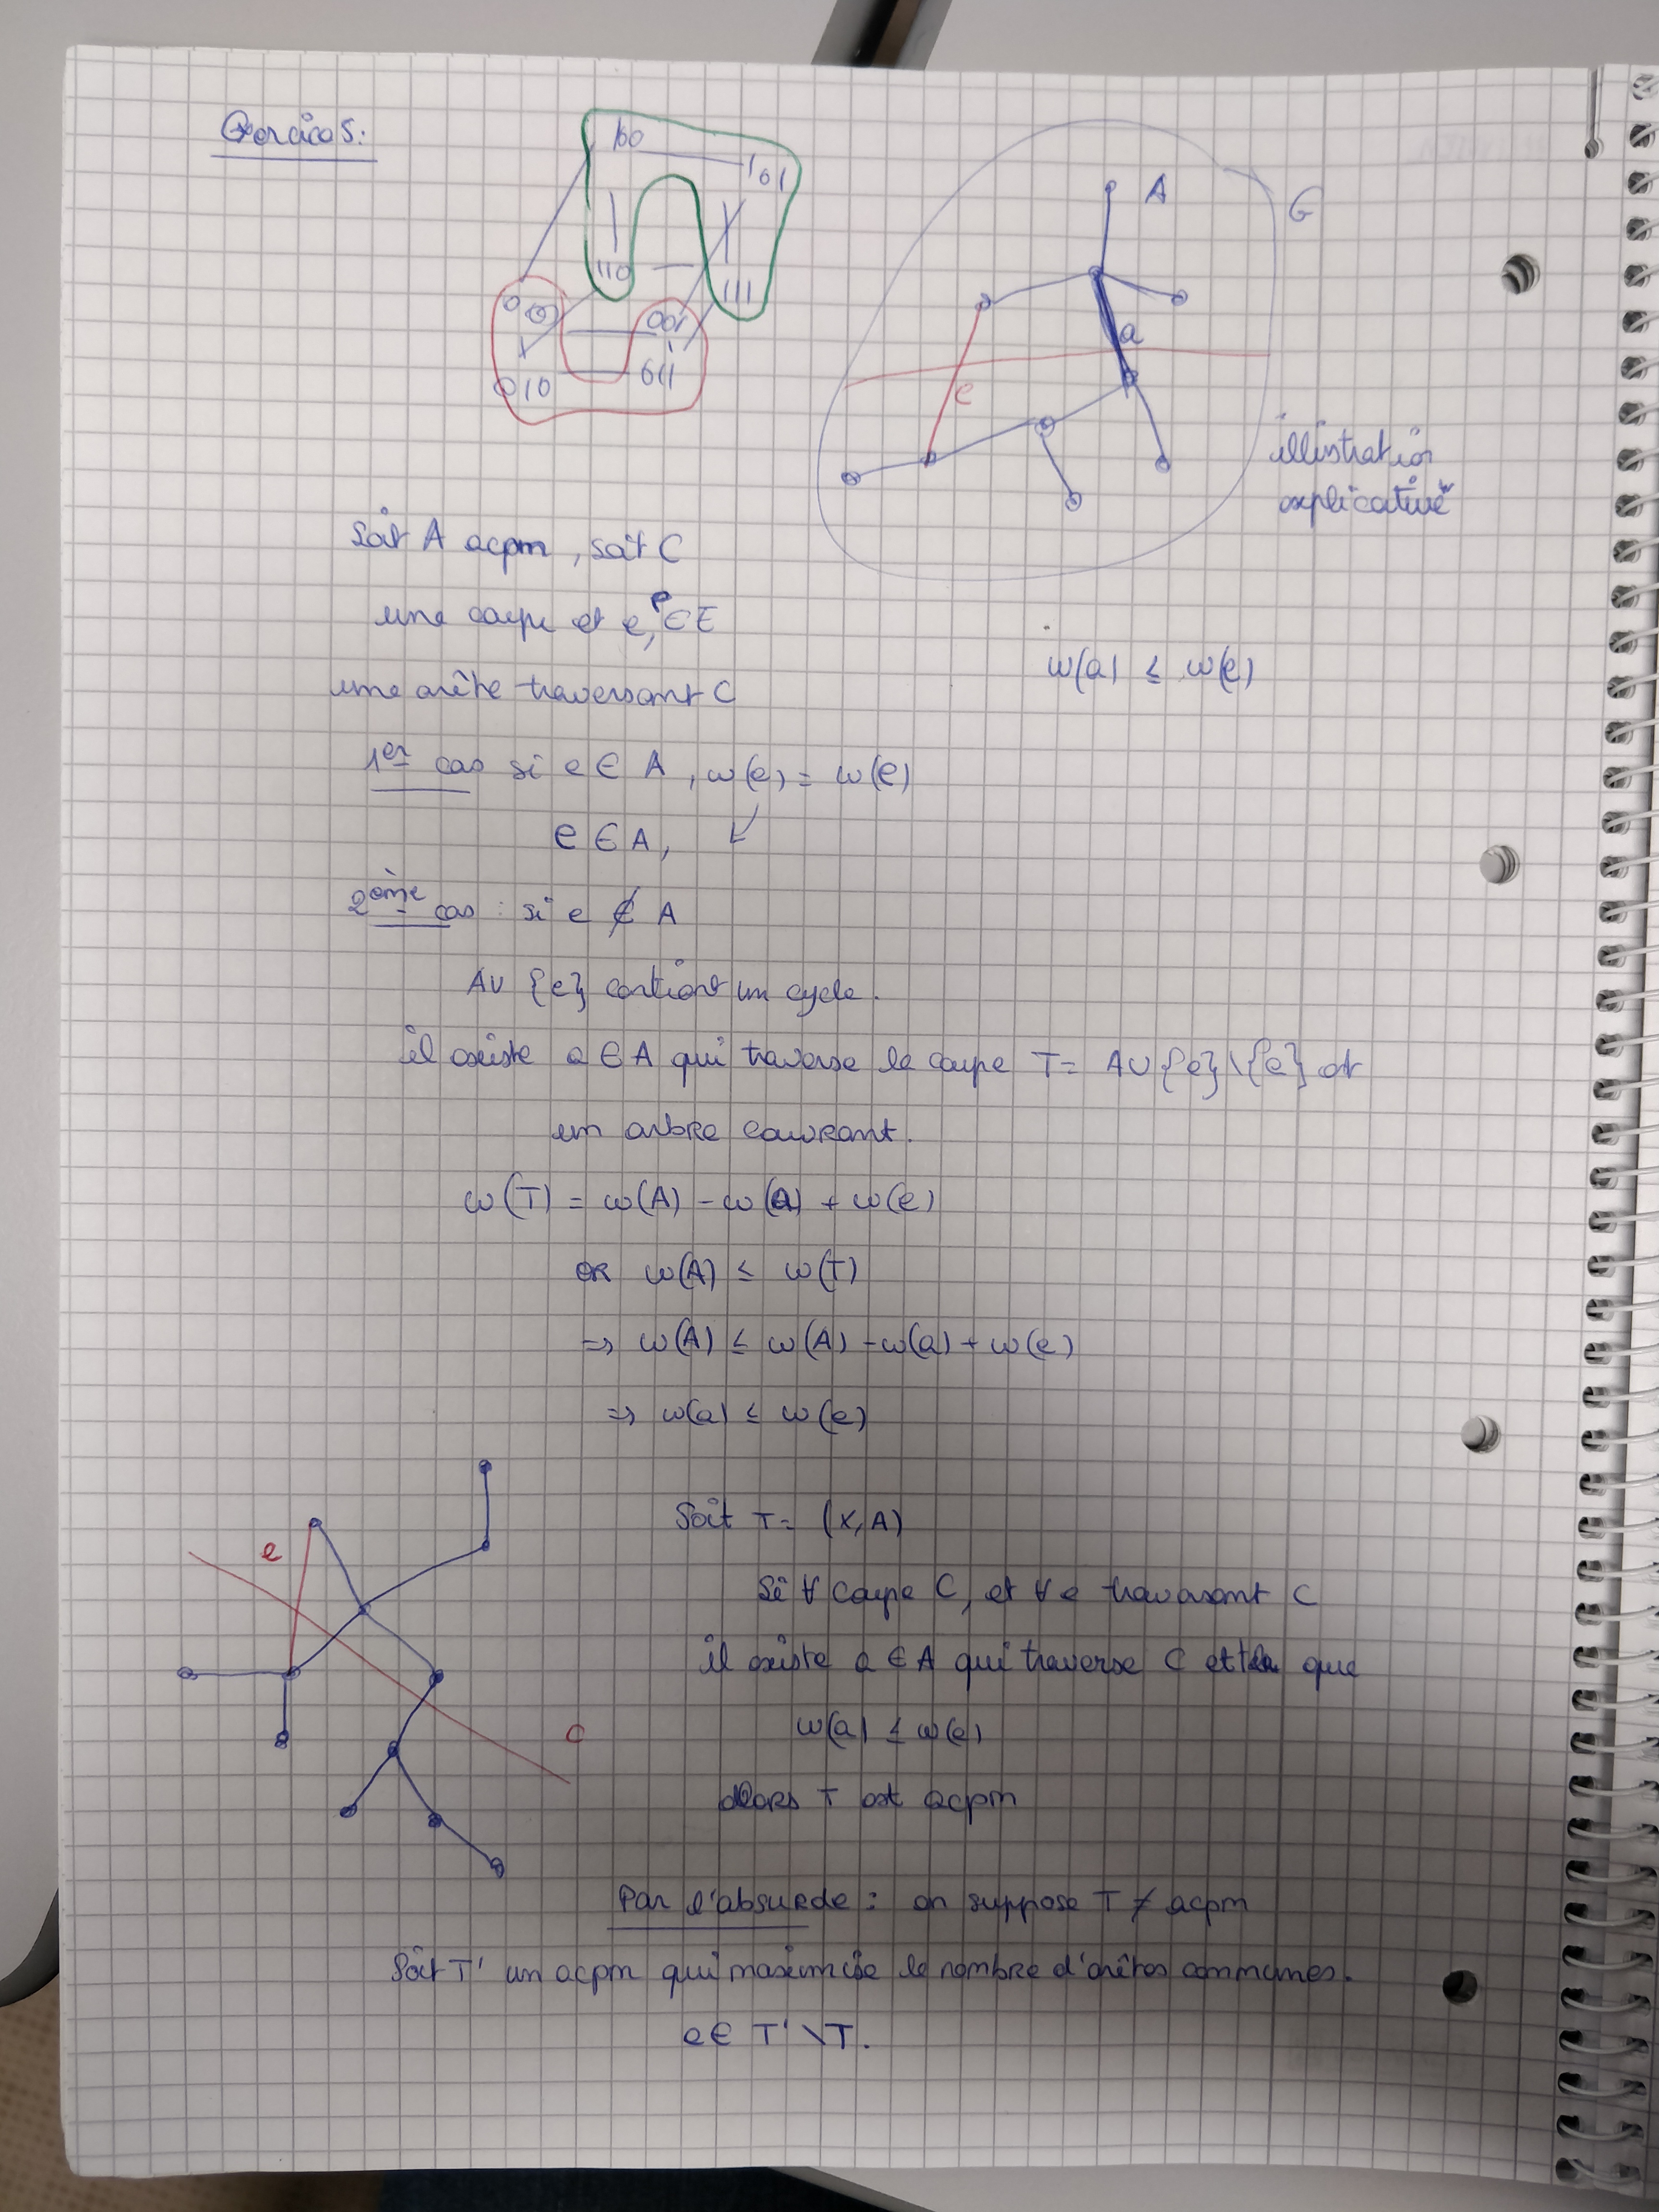 Exercice 5:
100
101
110
111
000
001
010
011
A
G
a
e
illistration
explicative
Soit A acpm, soit C
une coupe et e, ∈ E
une arête traversant C
w(a) ≤ w(e)
1er cas si e ∈ A, w(e) = w(e)
e ∈ A, ↙
2ème cas : si e ∉ A
A ∪ {e} contient un cycle.
il existe a ∈ A qui traverse la coupe T = A ∪ {e} \ {a} est
un arbre couvrant.
w(T) = w(A) - w(a) + w(e)
OR w(A) ≤ w(T)
=> w(A) ≤ w(A) - w(a) + w(e)
=> w(a) ≤ w(e)
e
C
Soit T = (X, A)
Si ∀ coupe C, et ∀ e traversant C
il existe a ∈ A qui traverse C et que
w(a) ≤ w(e)
alors T est acpm
Par l'absurde : on suppose T ≠ acpm
Soit T' un acpm qui maximise le nombre d'arêtes communes.
e ∈ T' \ T.